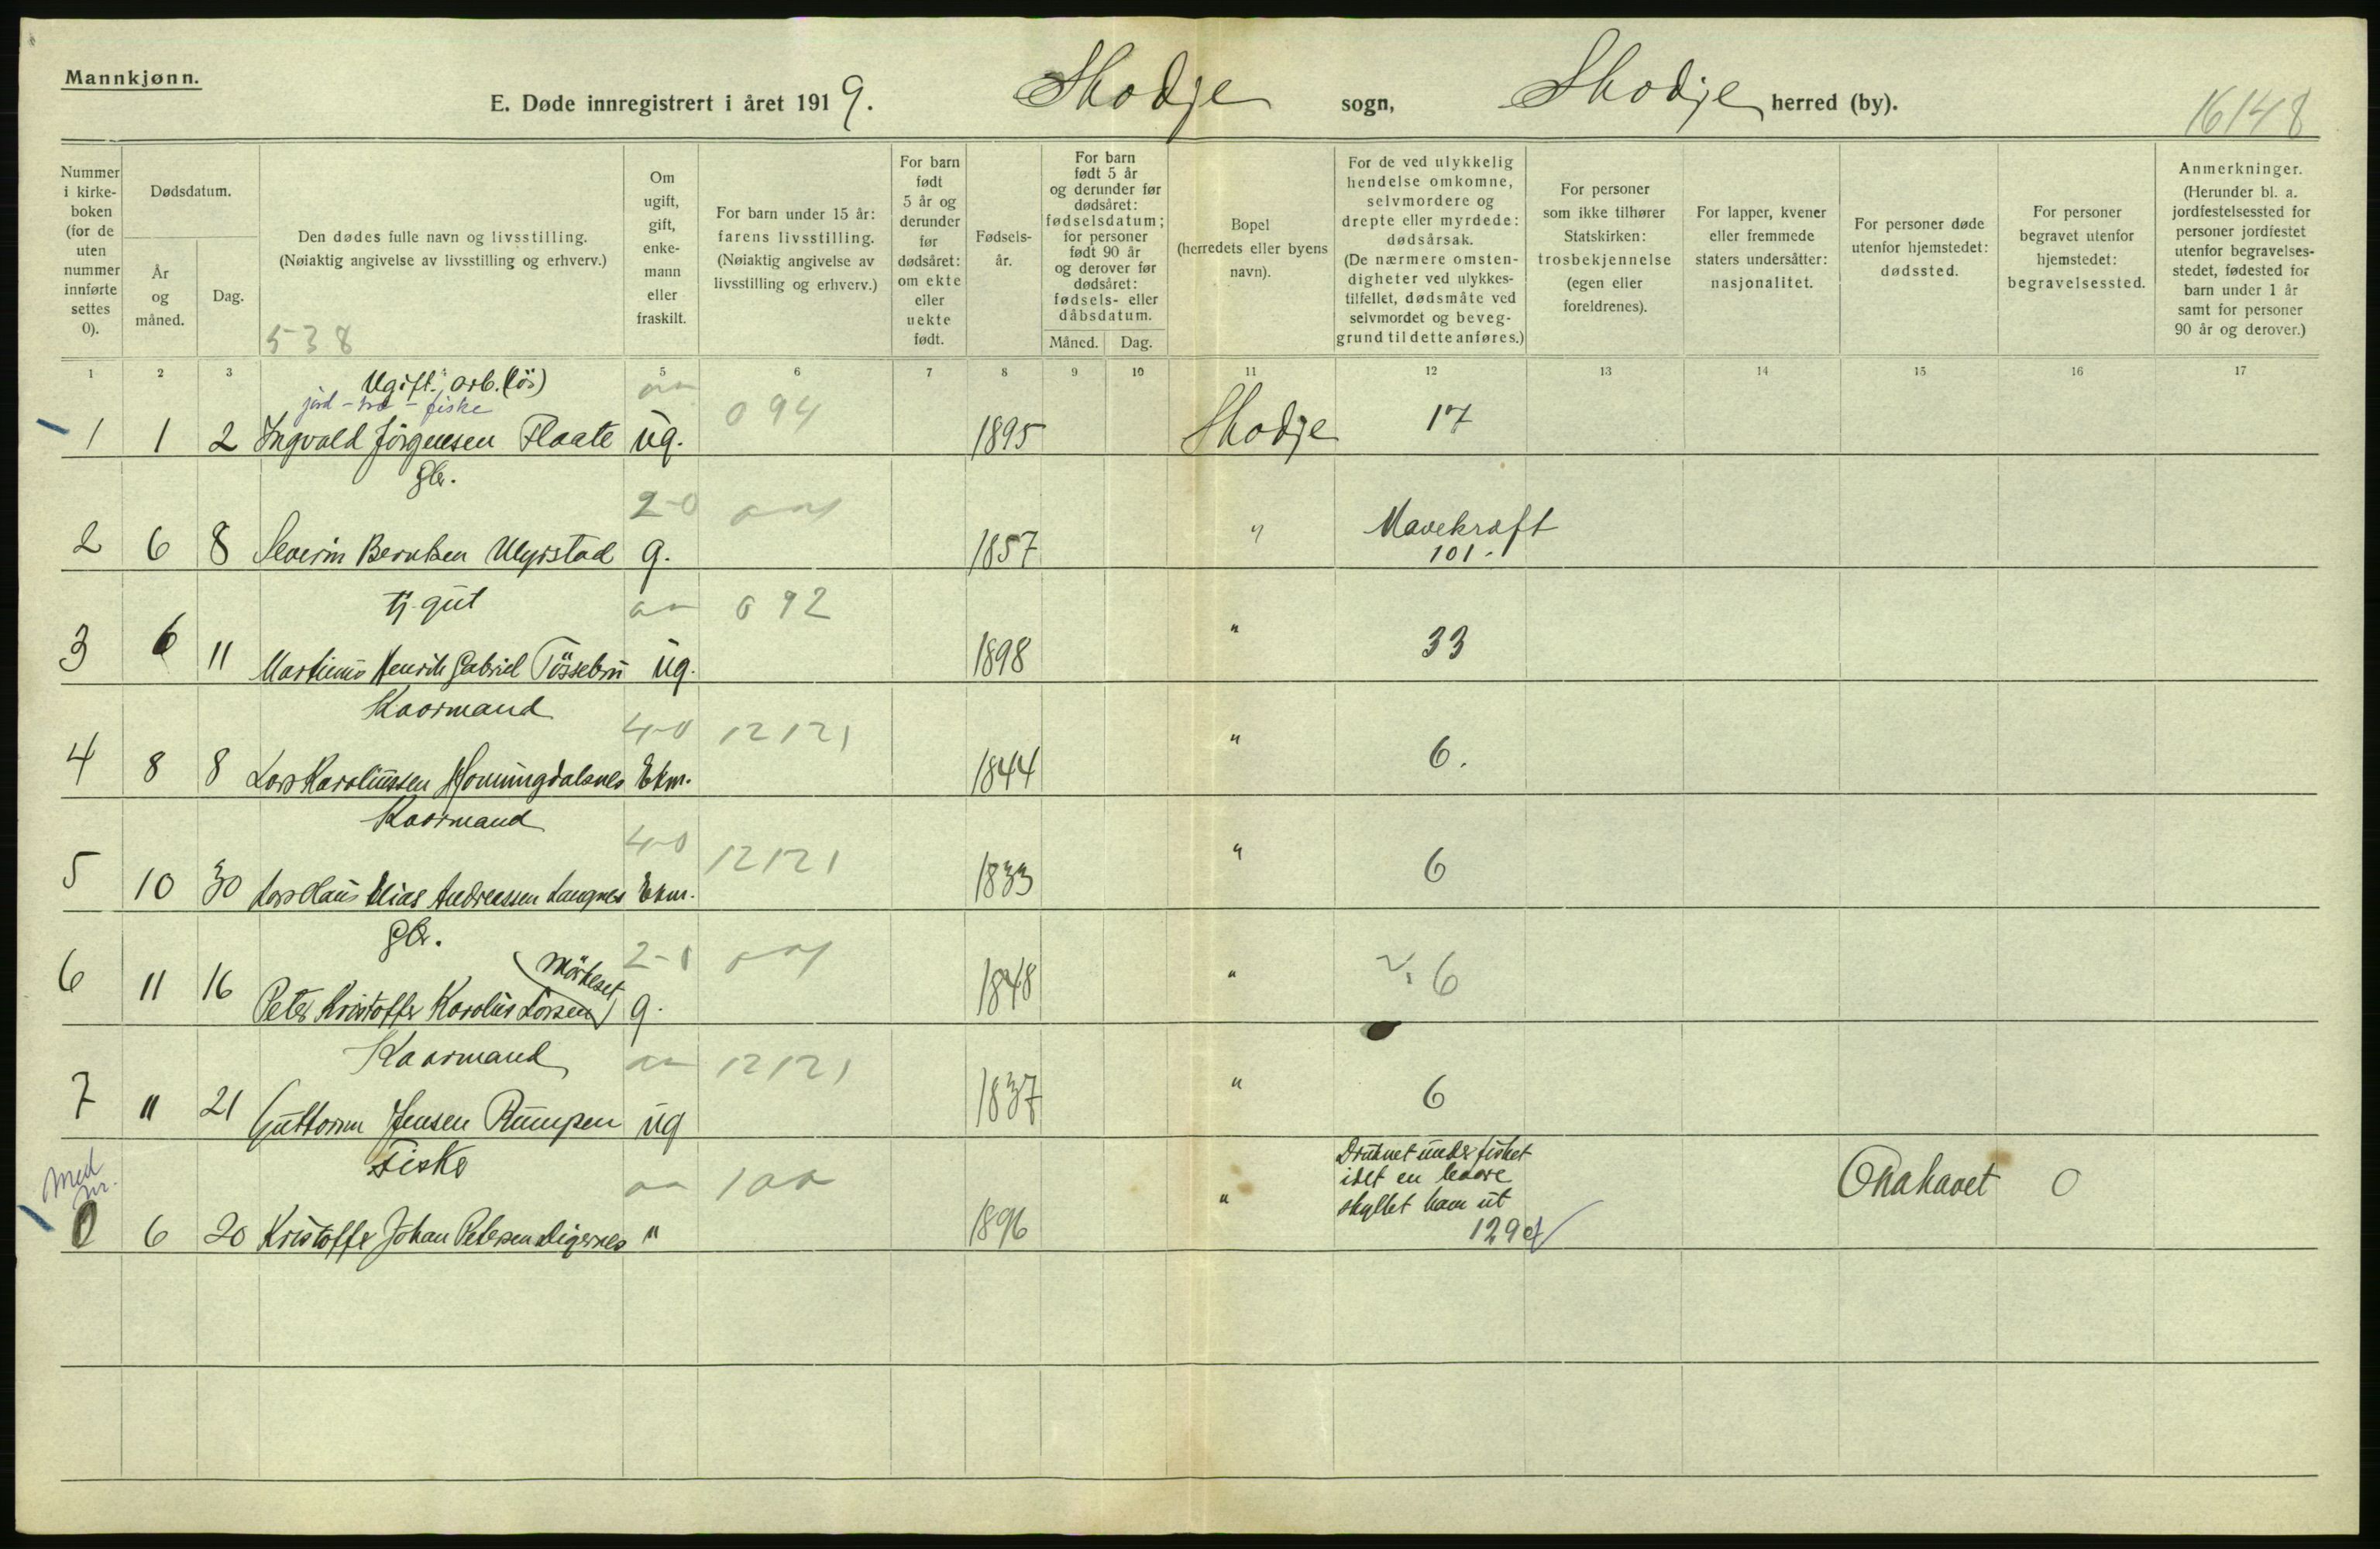 Mannkjønn.
E. Døde innregistrert i året 1919. Skodje sogn, Skodje herred (by).
16148
Nummer i kirke- boken (for de uten nummer innførte settes 0).
Dødsdatum.
År og måned.
Dag.
Den dødes fulle navn og livsstilling.
(Nøiaktig angivelse av livsstilling og erhverv.)
538
Om ugift, gift, enke- mann eller fraskilt.
For barn under 15 år: farens livsstilling. (Nøiaktig angivelse av livsstilling og erhverv.)
For barn født 5 år og derunder før dødsåret: om ekte eller uekte født.
Fødsels- år.
For barn født 5 år og derunder før dødsåret: fødselsdatum; for personer født 90 år og derover før dødsåret: fødsels- eller dåbsdatum.
Måned. Dag.
Bopel (herredets eller byens navn).
For de ved ulykkelig hendelse omkomne, selvmordere og drepte eller myrdede: dødsårsak. (De nærmere omsten- digheter ved ulykkes- tilfellet, dødsmåte ved selvmordet og beveg- grund til dette anføres.)
For personer som ikke tilhører Statskirken: trosbekjennelse (egen eller foreldrenes).
For lapper, kvener eller fremmede staters undersåtter: nasjonalitet.
For personer døde utenfor hjemstedet: dødssted.
For personer begravet utenfor hjemstedet: begravelsessted.
Anmerkninger. (Herunder bl. a. jordfestelsessted for personer jordfestet utenfor begravelses- stedet, fødested for barn under 1 år samt for personer 90 år og derover.)
1 2 3 5 6 7 8 9 10 11 12 13 14 15 16 17
Ugift. arb. (løs)
jord - - fiske
094
1 1 2 Ingvald Jörgensen Flaate ug. 1895 Skodje 17
gbr.
2-0
2 6 8 Severin Berntsen Myrstad g. 1857 " Mavekræft
101.
tj. gut
092
3 6 11 Martinus Henrik Gabriel Fössebru ug. 1898 " 33
Kaarmand
4-0 12121
4 8 8 Lars Karoliussen Honningdalsnes Ekm. 1844 " 6.
Kaarmand
4-0 12121
5 10 30 Lars Hans Elias Andreassen Langnes Ekm. 1833 " 6
gbr.
2-1
6 11 16 Peter Kristoffer Karolius Larsen (Mörkeset) g. 1848 " 6
Kaarmand
12121
7 " 21 Guttorm Jensen Rumpen ug 1837 " 6
Med nr.
Fisker
0 6 20 Kristoffer Johan Petersen Digernes " 1896 " Druknet under fisket
idet en baare
skyllet ham ut
129
Onahavet 0